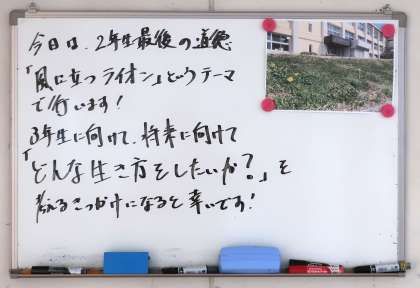 今日は、2年生最後の道徳
「風に立つライオン」というテーマ
で行います！
3年生に向けて、将来に向けて
「どんな生き方をしたいか？」を
考えるきっかけになると幸いです！